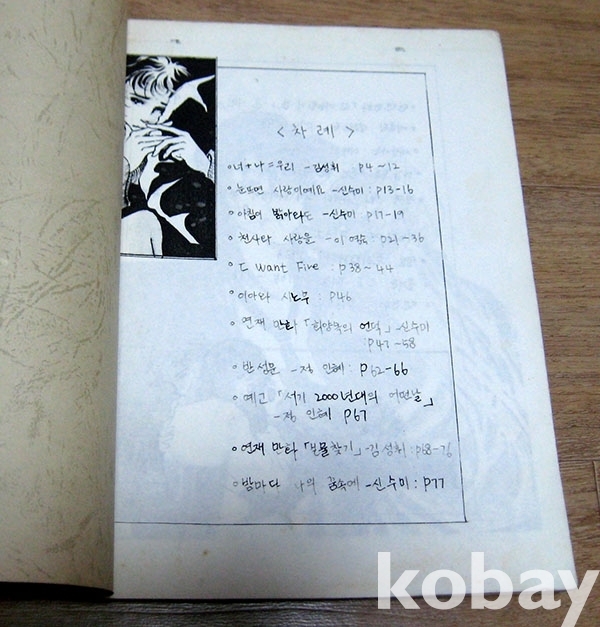 < 차 례 >
너+나=우리 -김성휘 p4~12
눈뜨면 사랑이예요 -신수미: p13-16
아침이 밝아라도 -신수미: p17-19
천사와 사랑을 -이 : p21~36
I Want Five : p38~44
이아라 시노우 : p46
연재 만화 「희망목의 언덕」 -신수미
: p47~58
반성문 -정 인혜: p62-66
예고 「서기 2000년대의 어떤날」
-정 인혜 p67
연재 만화 「보물찾기」 -김성휘: p68-
밤마다 나의 꿈속에 -신수미: p77
kobay